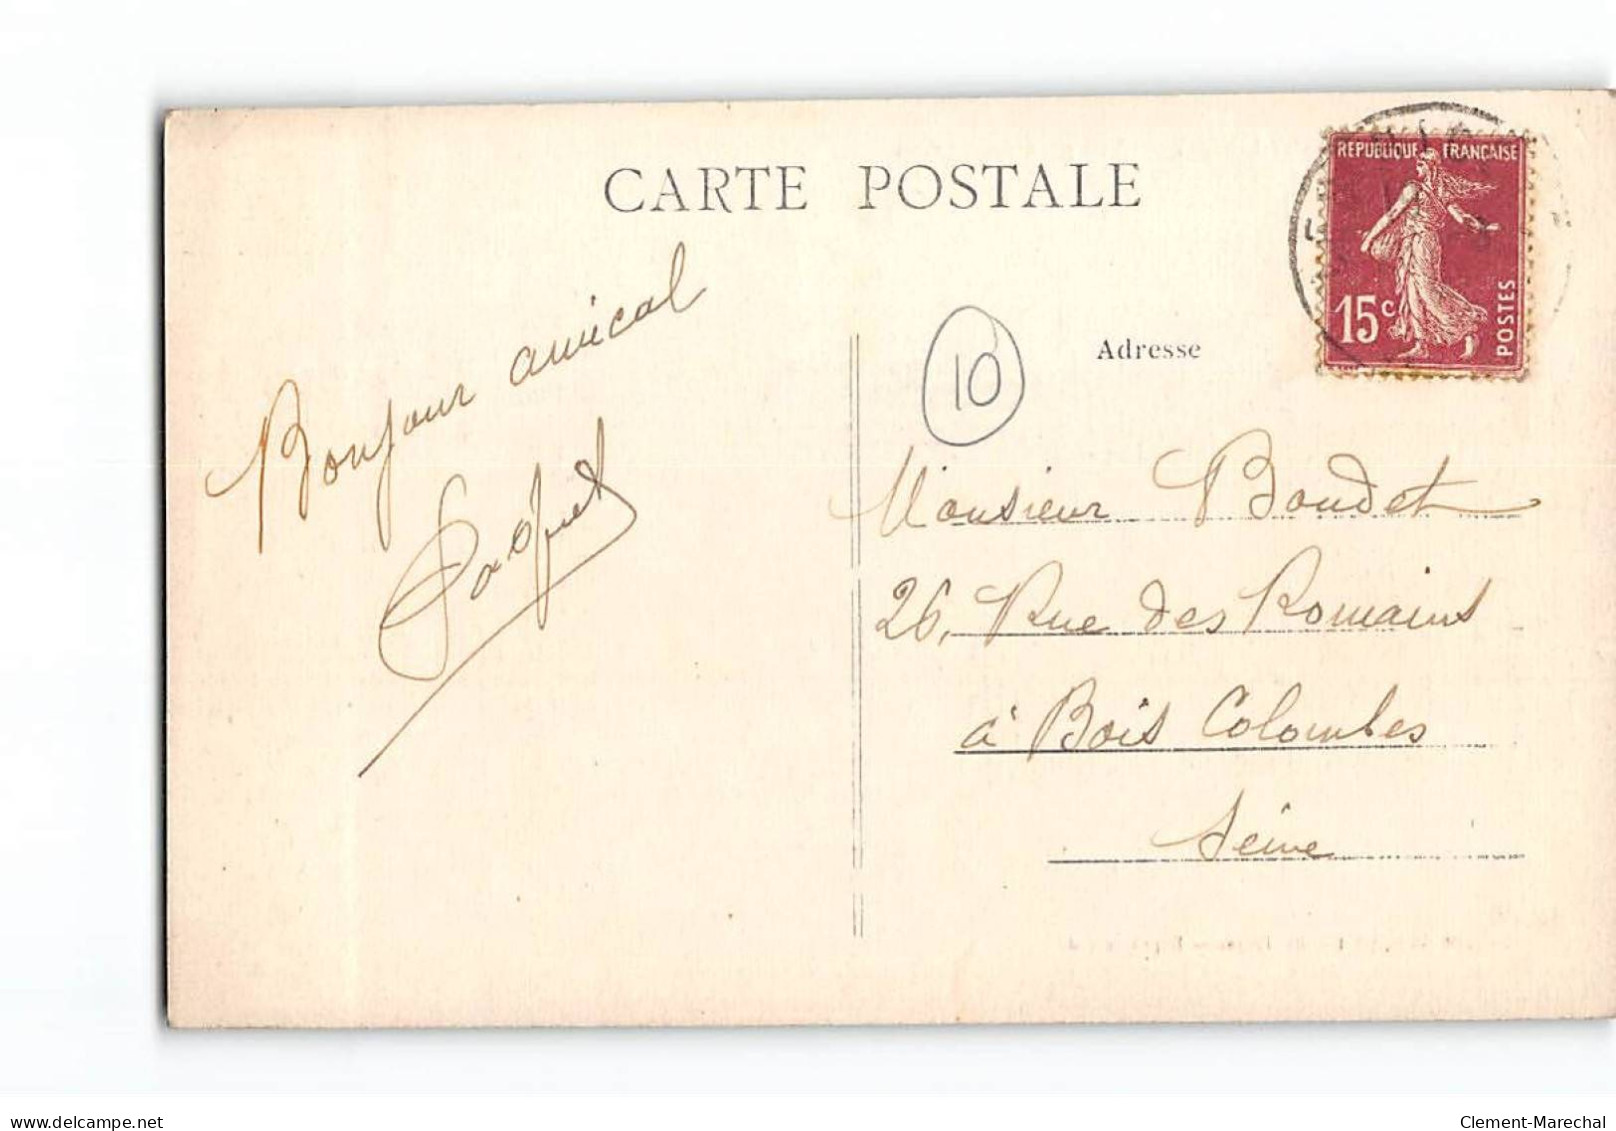 CARTE POSTALE
REPUBLIQUE FRANÇAISE
15c
POSTES
Bonjour amical
Paquet
10
Adresse
Monsieur Boudet
26, Rue des Romains
à Bois Colombes
Seine
www.delcampe.net
Clement-Marechal